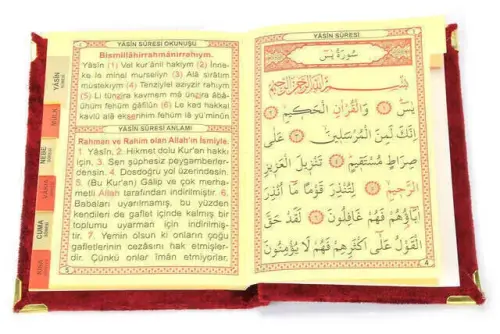 YÂSÎN SÛRESİ OKUNUŞU
Bismillâhirrahmânirrahıym.
Yâsîn (1) Vel kur'âni hakiym (2) İnne-
ke le minel murseliyn (3) Alâ sırâtim
müstekıym (4) Tenziylel aziyzir rahıym
(5) Li tünzira kavmem mê ünzira âbâ-
ühüm fehüm gâfilûn (6) Le kad hakkal
kavlü alâ ekserihim fehüm lâ yü'minûn.
YÂSÎN SÛRESİ ANLAMI
Rahman ve Rahim olan Allah'ın İsmiyle.
1. Yâsîn, 2. Hikmet dolu Kur'an hakkı
için, 3. Sen şüphesiz peygamberler-
densin. 4. Dosdoğru yol üzerindesin.
5. (Bu Kur'an) Gâlip ve çok merha-
metli Allah tarafından indirilmiştir. 6.
Babaları uyarılmamış, bu yüzden
kendileri de gaflet içinde kalmış bir
toplumu uyarman için indirilmiş-
tir. 7. Yemin olsun ki onların çoğu
gafletlerinin cezasını hak etmişler-
dir. Çünkü onlar îman etmiyorlar.
5
YÂSİN
MÜLK
NEBE
CUMA
YÂSİN SÛRESİ
سُورَةُ يٰسٓ
بِسْمِ اللّٰهِ الرَّحْمٰنِ الرَّحِيمِ
يٰسٓ ﴿١﴾ وَالْقُرْاٰنِ الْحَكِيمِ ﴿٢﴾
اِنَّكَ لَمِنَ الْمُرْسَلِينَ ﴿٣﴾ عَلٰى
صِرَاطٍ مُسْتَقِيمٍ ﴿٤﴾ تَنْزِيلَ الْعَزِيزِ
الرَّحِيمِ ﴿٥﴾ لِتُنْذِرَ قَوْمًا مَٓا اُنْذِرَ
اٰبَٓاؤُهُمْ فَهُمْ غَافِلُونَ ﴿٦﴾ لَقَدْ حَقَّ
الْقَوْلُ عَلٰٓى اَكْثَرِهِمْ فَهُمْ لَا يُؤْمِنُونَ
4